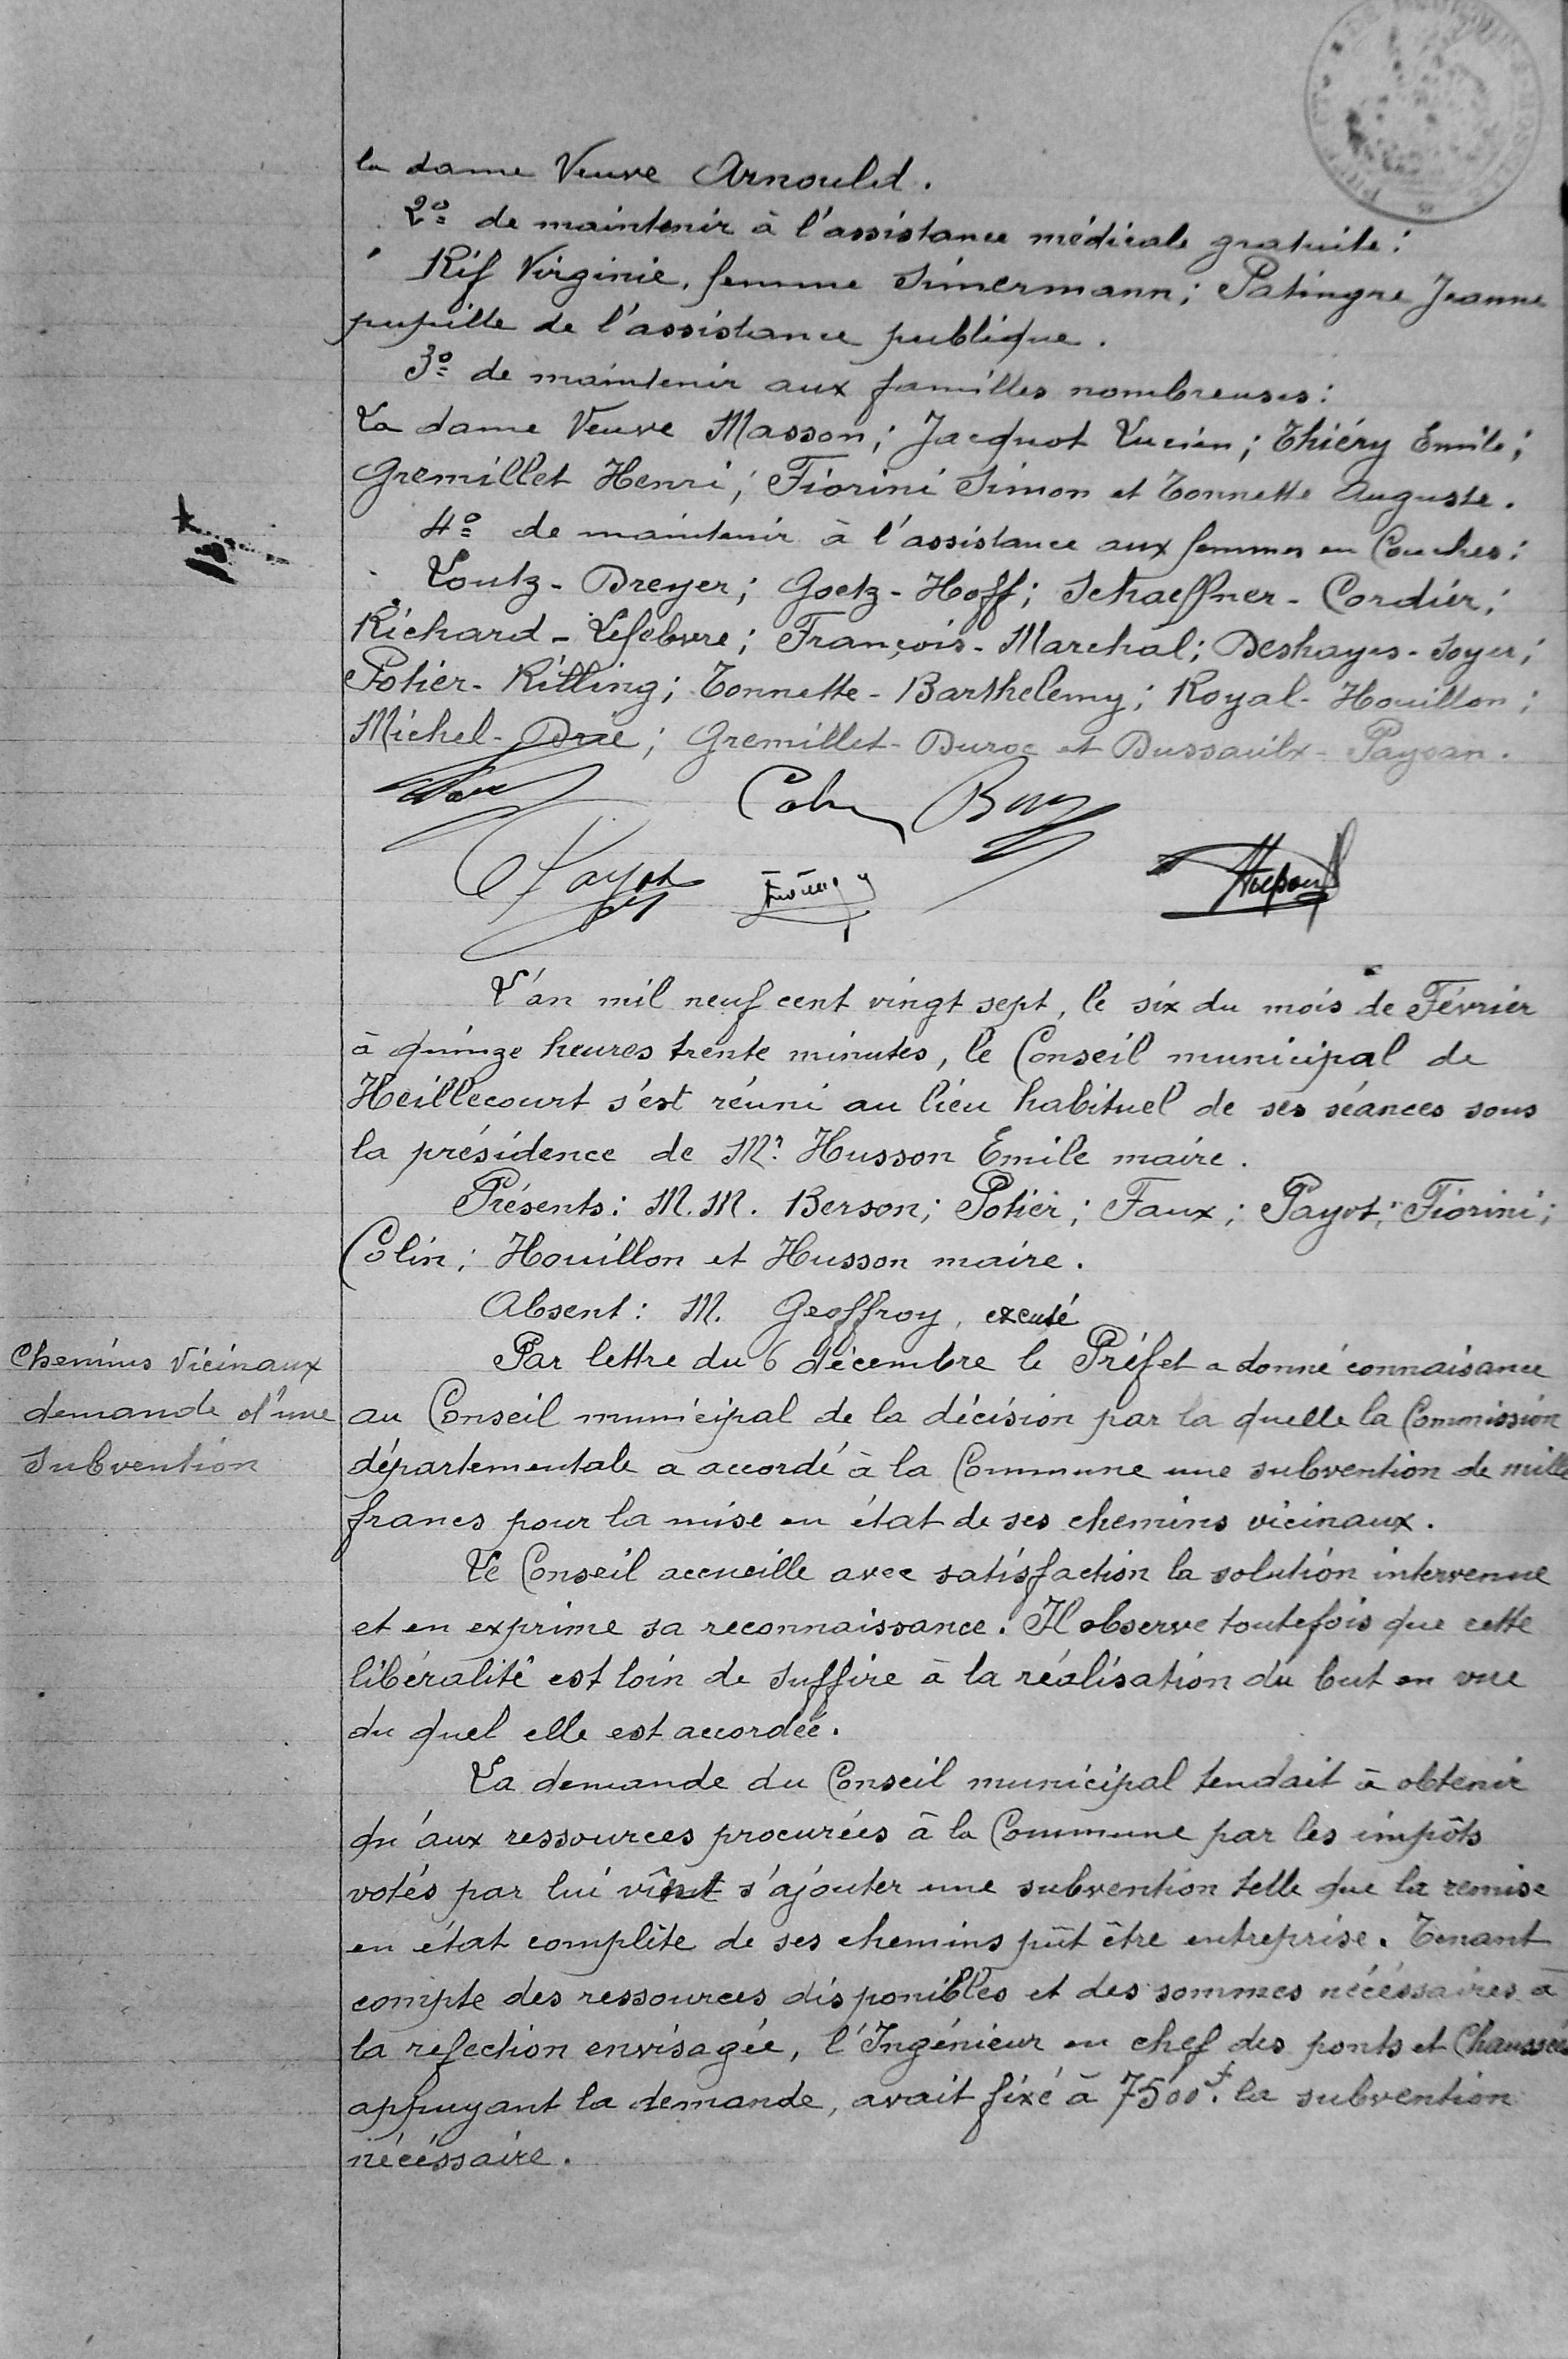 la dame Veuve Arnould.
2º de maintenir à l'assistance médicale gratuite:
Rif Virginie, femme Simermann; Patingre Jeanne
pupille de l'assistance publique.
3º de maintenir aux familles nombreuses:
La dame Veuve Masson; Jacquot Lucien; Thiéry Emile;
Gremillet Henri; Fiorini Simon et Tonnette Auguste.
4º de maintenir à l'assistance aux femmes en Couches:
Loutz-Dreyer; Goetz-Hoff; Schaeffner-Cordier;
Richard-Lefebvre; François-Marchal; Deshayes-Soyer;
Potier-Rilling; Tonnette-Barthelemy; Royal-Houillon;
Michel-Drie; Gremillet-Duroc et Dussaulx-Paysan.
Colin
Payot Fiorini Husson
L'an mil neuf cent vingt sept, le six du mois de Février
à quinze heures trente minutes, le Conseil municipal de
Heillecourt s'est réuni au lieu habituel de ses séances sous
la présidence de Mr. Husson Emile maire.
Présents: M.M. Berson; Potier; Faux; Payot; Fiorini;
Colin; Houillon et Husson maire.
Absent: M. Geoffroy, excusé
Chemins Vicinaux
demande d'une
Subvention
Par lettre du 6 décembre le Préfet a donné connaisance
au Conseil municipal de la décision par la quelle la Commission
départementale a accordé à la Commune une subvention de mille
francs pour la mise en état de ses chemins vicinaux.
Le Conseil accueille avec satisfaction la solution intervenue
et en exprime sa reconnaissance. Il observe toutefois que cette
libéralité est loin de suffire à la réalisation du but en vue
du quel elle est accordée.
La demande du Conseil municipal tendait à obtenir
qu'aux ressources procurées à la Commune par les impôts
votés par lui vînt s'ajouter une subvention telle que la remise
en état complète de ses chemins pût être entreprise. Tenant
compte des ressources disponibles et des sommes nécéssaires à
la refection envisagée, l'Ingénieur en chef des ponts et Chaussées
appuyant la demande, avait fixé à 7500f. la subvention
nécéssaire.